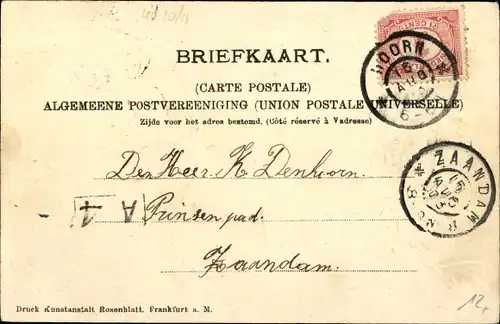 BRIEFKAART.
(CARTE POSTALE)
ALGEMEENE POSTVEREENIGING (UNION POSTALE UNIVERSELLE)
Zijde voor het adres bestemd. (Côté réservé à l'adresse)
HOORN
ZAANDAM
Den Heer K Denhoorn.
Prinsenpad.
A 4
Zaandam.
Druck Kunstanstalt Rosenblatt, Frankfurt a. M.
12,